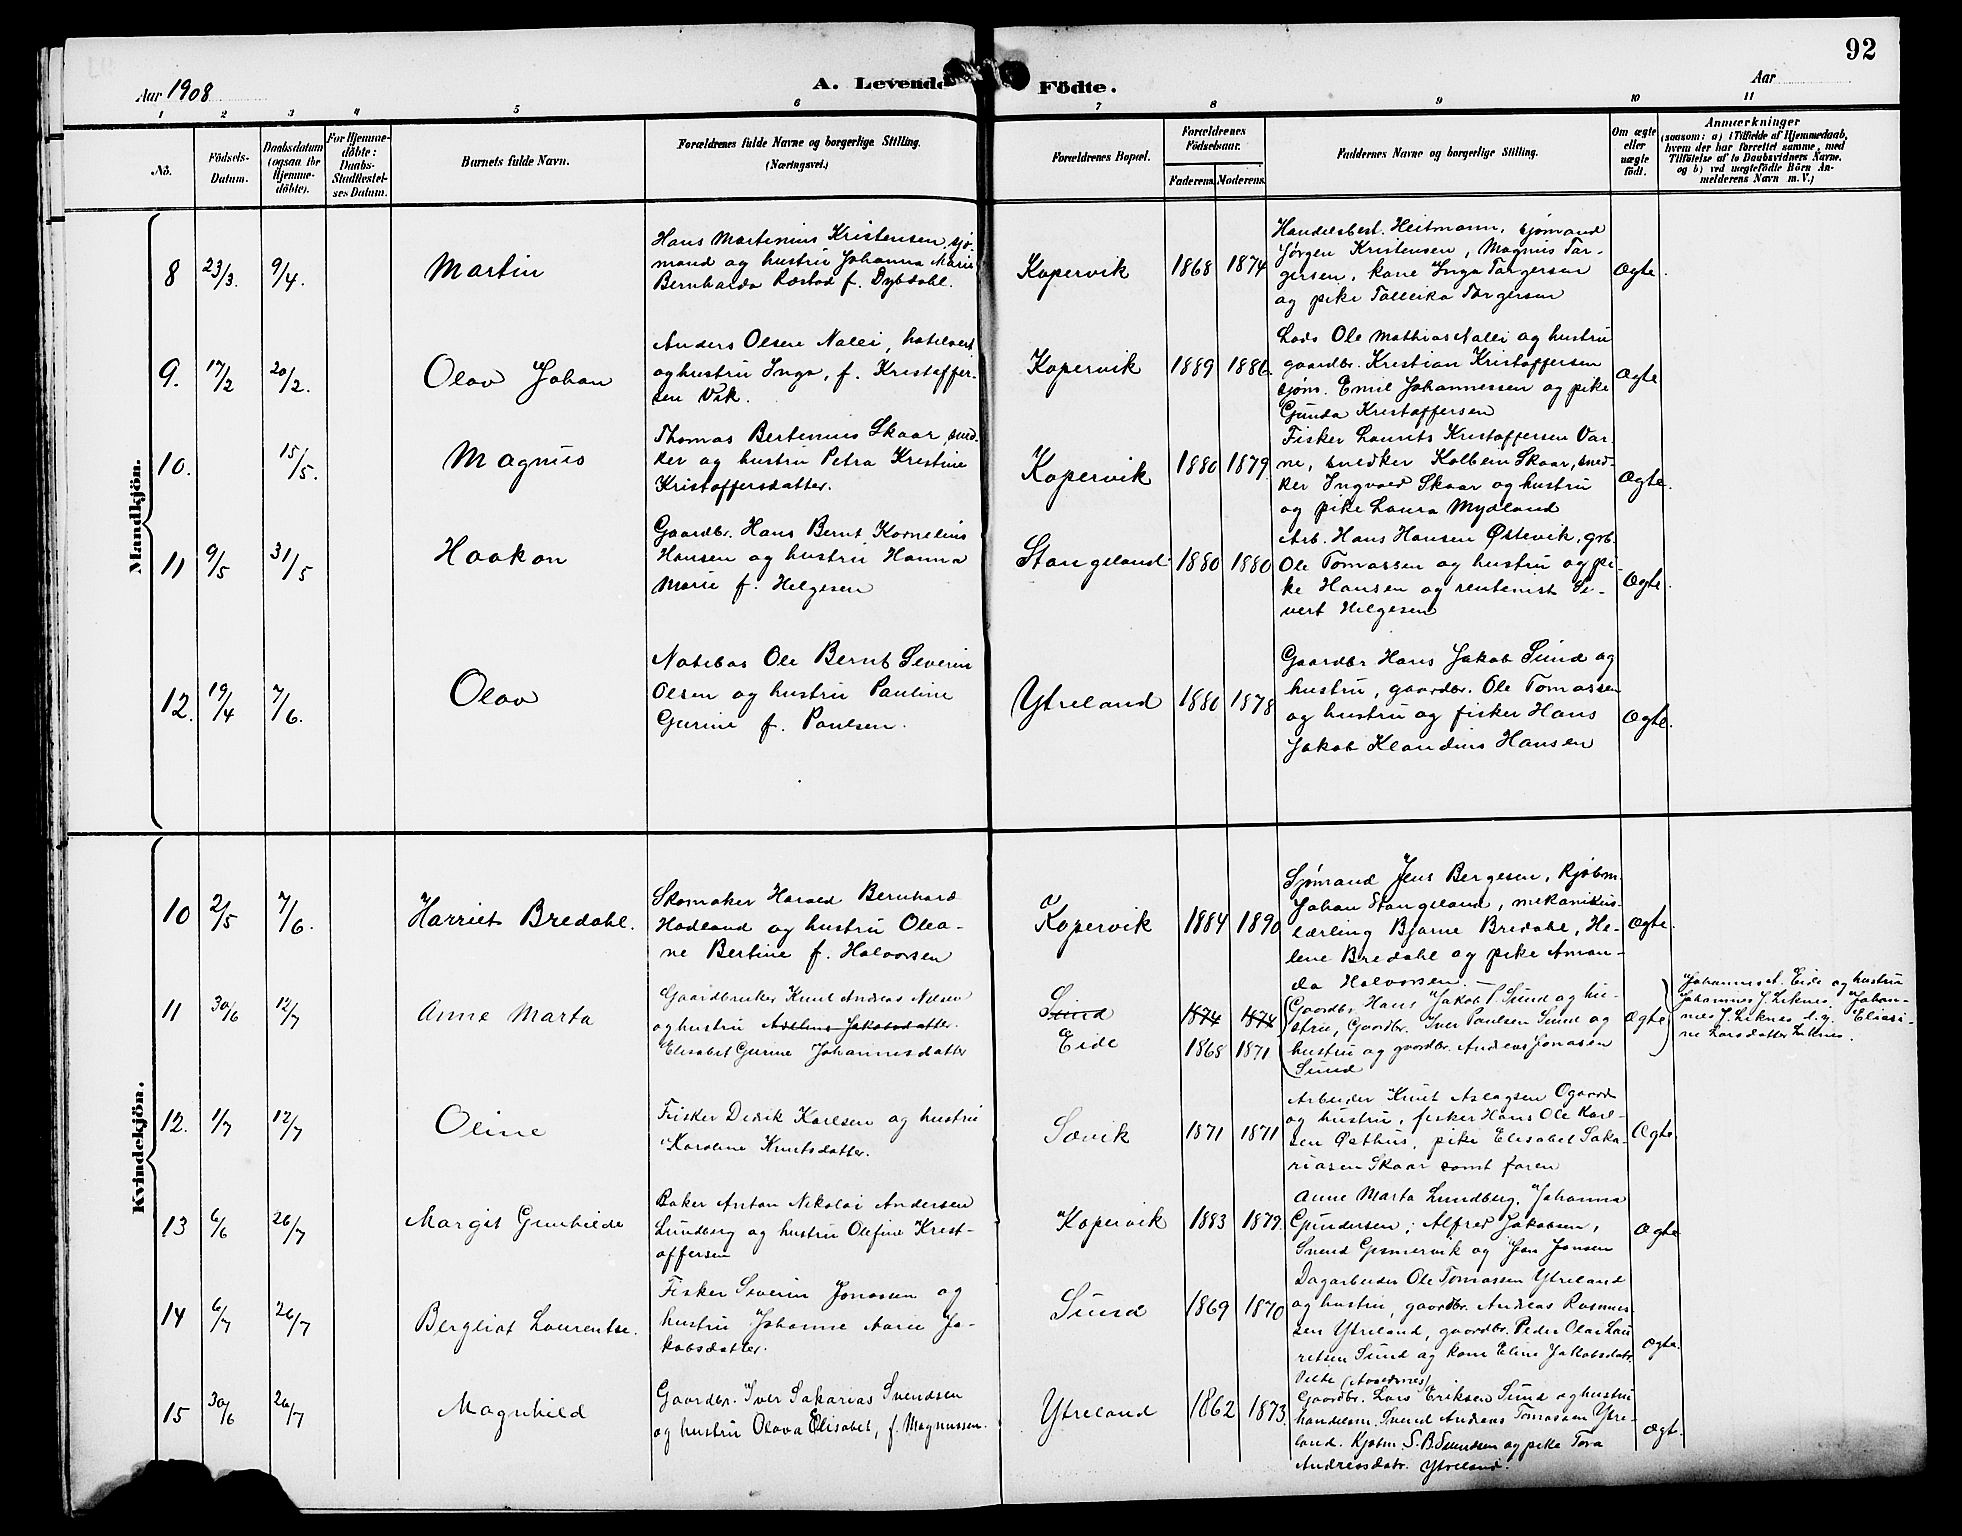 92
Aar 1908
A. Levende Födte.
Aar
1 2 3 4 5 6 7 8 9 10 11
No.
Födsels-
Datum.
Daabsdatum
(ogsaa for
Hjemme-
döbte).
For Hjemme-
döbte:
Daabs-
Stadfæstel-
ses Datum.
Barnets fulde Navn.
Forældrenes fulde Navne og borgerlige Stilling.
(Næringsvei.)
Forældrenes Bopæl.
Forældrenes
Födselsaar.
Faderens. Moderens.
Faddernes Navne og borgerlige Stilling.
Om ægte
eller
uægte
födt.
Anmærkninger
(saasom: a) i Tilfælde af Hjemmedaab,
hvem der har forrettet samme, med
Tilföielse af to Daabsvidners Navne,
og b) ved uægtefödte Börn An-
melderens Navn m. V.)
Mandkjön.
8 23/3. 9/4. Martin
Hans Martinius Kristensen, sjø-
mand og hustru Johanna Marie
Bernharda Røstad f. Dybdahl.
Kopervik 1868 1874
Handelsbest. Heitmann, sjømand
Jørgen Kristensen, Magnus Tor-
gersen, kone Inga Torgersen
og pike Talleika Torgersen
Ægte.
9. 17/2 20/2. Olav Johan
Anders Olsen Nalei, hotelvert
og hustru Inga, f. Kristoffer-
sen Vik.
Kopervik 1889 1886.
Lods Ole Mathias Nalei og hustru
gaardbr. Kristian Kristoffersen
sjøm. Emil Johannessen og pike
Gunda Kristoffersen
Ægte
10. 15/5. Magnus
Thomas Bertinius Skaar, sned-
ker og hustru Petra Kristine
Kristoffersdatter.
Kopervik 1880 1879.
Fisker Laurits Kristoffersen Var-
ne, snedker Kolbein Skaar, sned-
ker Ingvald Skaar og hustru
og pike Laura Mydland
Ægte.
11 9/5 31/5 Haakon
Gaardbr. Hans Bernt Kornelius
Hansen og hustru Hanna
Marie f. Helgesen
Stangeland 1880 1880
Arb. Hans Hansen Østevik, grb.
Ole Tomassen og hustru og pi-
ke Hansen og rentenist Si-
vert Helgesen
Ægte.
12. 19/4 7/6. Olav
Notebas Ole Bernt Severin
Olsen og hustru Pauline
Gurine f. Paulsen.
Ytreland 1880 1878
Gaardbr Hans Jakob Sund og
hustru, gaardbr. Ole Tomassen
og hustru og fisker Hans
Jakob Klaudius Hansen
Ægte.
Kvindekjön.
10 2/5 7/6. Harriet Bredahl.
Skomaker Harald Bernhard
Hodland og hustru Olea-
ne Bertine f. Halvorsen
Kopervik 1884 1890
Sjømand Jens Bergesen, Kjøbm.
Johan Stangeland, mekanikus-
lærling Bjarne Bredahl, He-
lene Bredahl og pike Aman-
da Halvorsen.
Ægte.
11 30/6 12/7 Anne Marta
Gaardbruker Knut Andreas Nilsen
og hustru Adeline Jakobsdatter.
Elisabet Gurine Johannesdatter
Sund 1874 1874
Eide 1868 1871
Gaardbr. Hans Jakob P. Sund og hu-
stru, Gaardbr. Iver Paulsen Sund og
hustru og gaardbr. Andreas Jonasen
Sund
Ægte
Johannes Eide og hustru
Johannes J. Liknes. Johan-
nes J. Liknes d.y. Eliasi-
ne Larsdatter Liknes.
12. 1/7 12/7 Oline
Fisker Didrik Karlsen og hustru
Karoline Knutsdatter.
Sævik 1871 1871
Arbeider Knut Aslagsen Ogaard
og hustru, fisker Hans Ole Karl-
sen Østhus, pike Elisabet Saka-
riasen Skaar samt faren
Ægte
13 6/6 26/7 Margit Gunhilde
Baker Anton Nikolai Andersen
Lundberg og hustru Olefine Krist-
offersen
Kopervik 1883 1879.
Anne Marta Lundberg, Johanna
Gundersen, Alfred Jakobsen,
Svend og Jon Jonsen
Ægte
14 6/7 26/7 Bergliot Laurentse.
Fisker Severin Jonassen og
hustru Johanne Aarie Ja-
kobsdatter.
Sund 1869 1870
Dagarbeider Ole Tomassen Ytreland
og hustru, gaardbr. Andreas Rasmus-
sen Ytreland, gaardbr. Peder Olai Lau-
ritsen Sund og kone Eline Jakobsdatr.
Ægte.
15 30/6 26/7 Magnhild
Gaardbr. Iver Sakarias Svendsen
og hustru Olava Elisabet, f. Magnussen.
Ytreland 1862 1873.
Gaardbr. Lars Eriksen Sund og hustru
handelsm. Svend Andreas Tomassen Ytre-
land. Kjøbm. S. B. Svendsen og pike Tora
Andreasdatr. Ytreland.
Ægt.